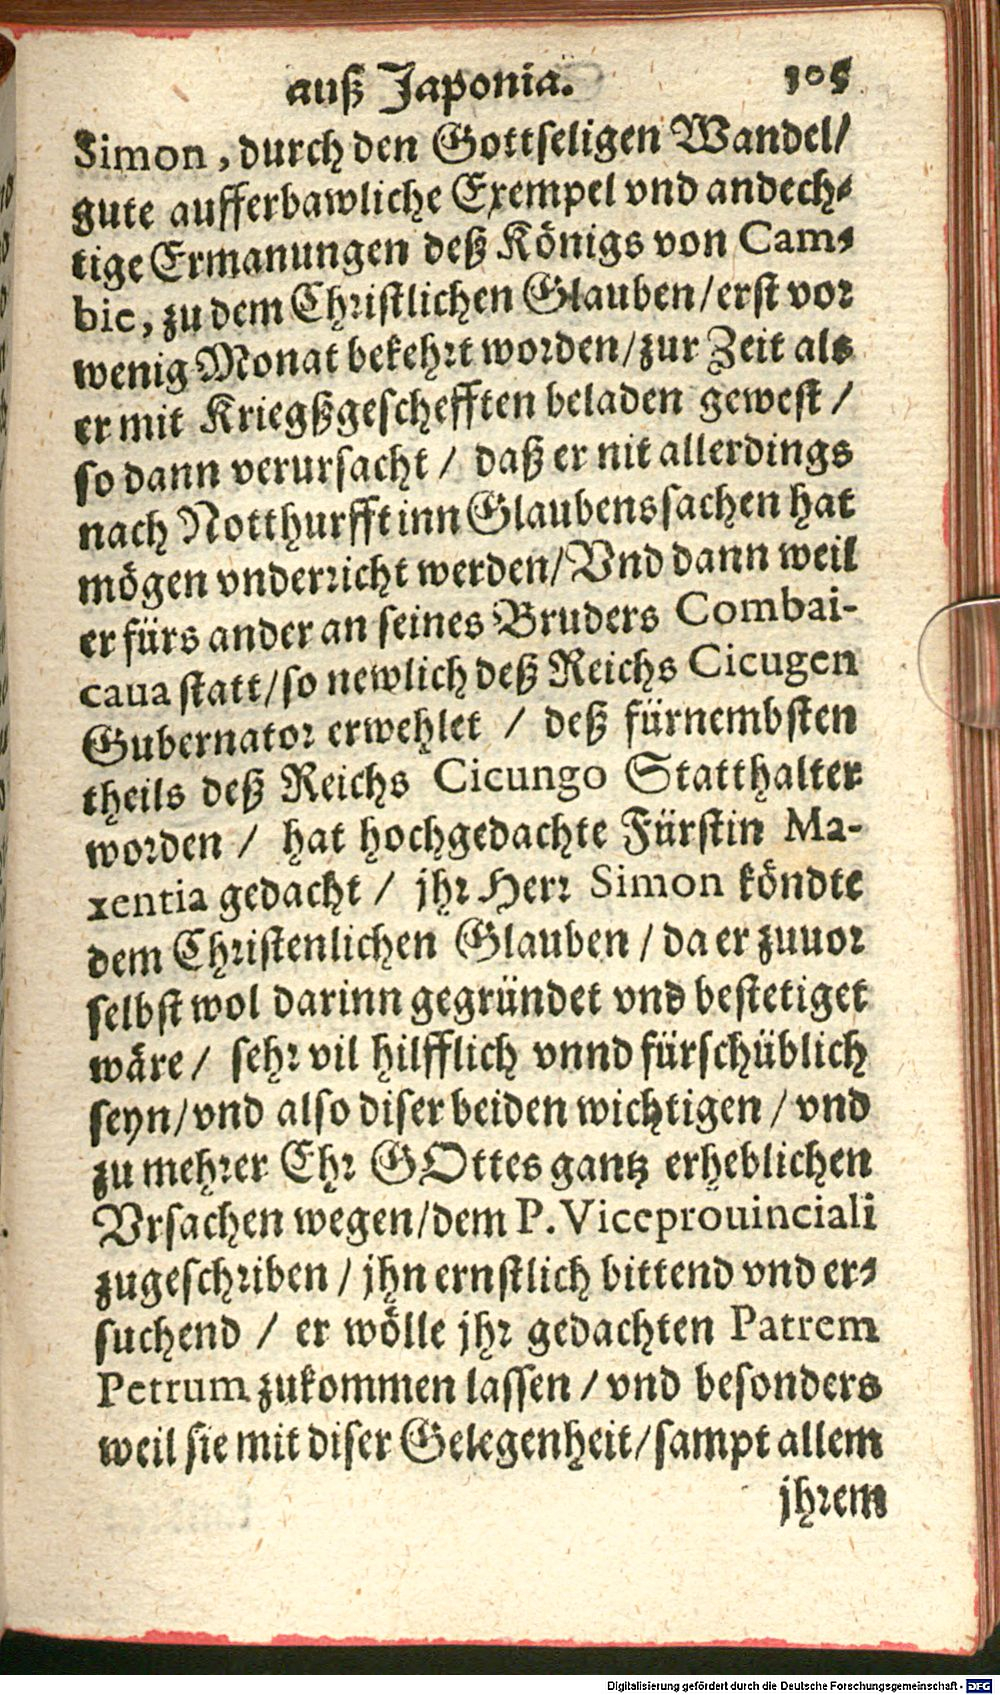 auß Japonia. 105
Simon, durch den Gottseligen Wandel/
gute aufferbawliche Exempel vnd andech⸗
tige Ermanungen deß Königs von Cam⸗
bie, zu dem Christlichen Glauben/erst vor
wenig Monat bekehrt worden/zur Zeit als
er mit Kriegßgeschefften beladen gewest /
so dann verursacht / daß er nit allerdings
nach Notthurfft inn Glaubenssachen hat
mögen vnderricht werden/Vnd dann weil
er fürs ander an seines Bruders Combai-
caua statt/so newlich deß Reichs Cicugen
Gubernator erwehlet / deß fürnembsten
theils deß Reichs Cicungo Statthalter
worden / hat hochgedachte Fürstin Ma-
xentia gedacht / jhr Herr Simon köndte
dem Christenlichen Glauben / da er zuuor
selbst wol darinn gegründet vnd bestetiget
wäre / sehr vil hilfflich vnnd fürschüblich
seyn/vnd also diser beiden wichtigen / vnd
zu mehrer Ehr GOttes gantz erheblichen
Vrsachen wegen/dem P. Viceprouinciali
zugeschriben / jhn ernstlich bittend vnd er⸗
suchend / er wölle jhr gedachten Patrem
Petrum zukommen lassen / vnd besonders
weil sie mit diser Gelegenheit/sampt allem
jhrem
Digitalisierung gefördert durch die Deutsche Forschungsgemeinschaft - DFG